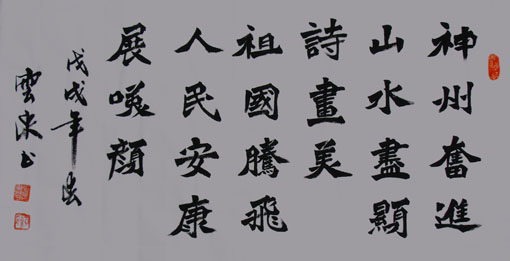 神州奮進
山水盡顯
詩畫美
祖國騰飛
人民安康
展顏
戊戌年
雲